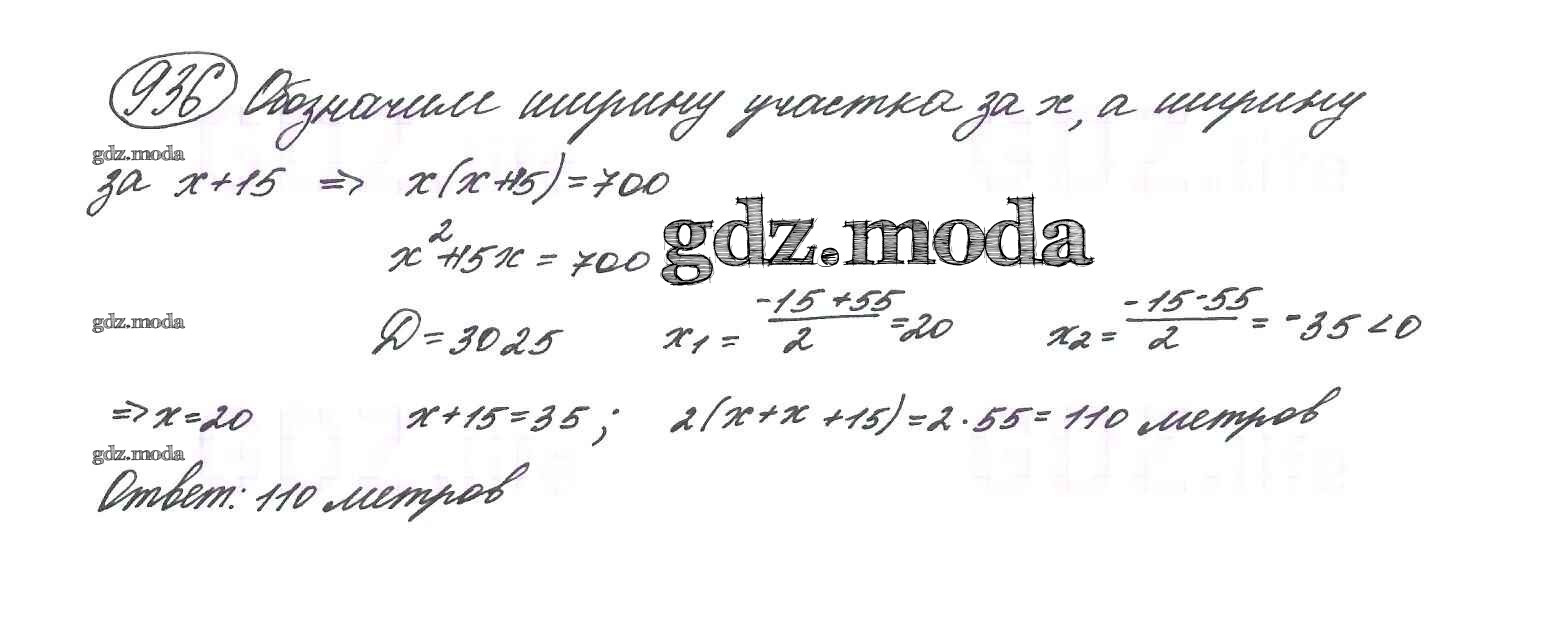 936 Обозначим ширину участка за x, а ширину
gdz.moda
за x+15 => x(x+15)=700
gdz.moda
x²+15x = 700
gdz.moda
D=3025 x₁ = (-15+55)/2 =20 x₂ = (-15-55)/2 = -35<0
=> x=20 x+15=35; 2(x+x+15)=2·55=110 метров
gdz.moda
Ответ: 110 метров